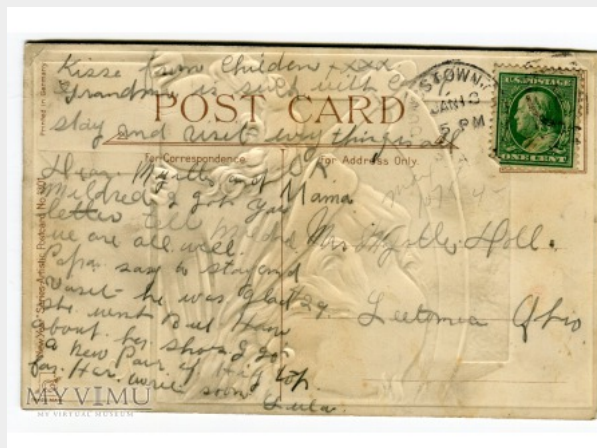 Kisses from Children xxx.
Grandma is sick with
stay and visit everything is all
OK
POST CARD
For Correspondence.
For Address Only.
Printed in Germany
"New Year" Series Artistic Postcard No.
STOWN
JAN 13
5 PM
U.S. POSTAGE
ONE CENT
Dear Myrtle and
Mildred I got your
letter tell Mama
we are all well. Mildred
Papa says to stay and
visit he was glad
she went
about her shoes I got
a new Pair of High top
for Her. write soon
Lula.
Mrs Myrtle Holl.
Leetonia Ohio.
MYVIMU
MY VIRTUAL MUSEUM